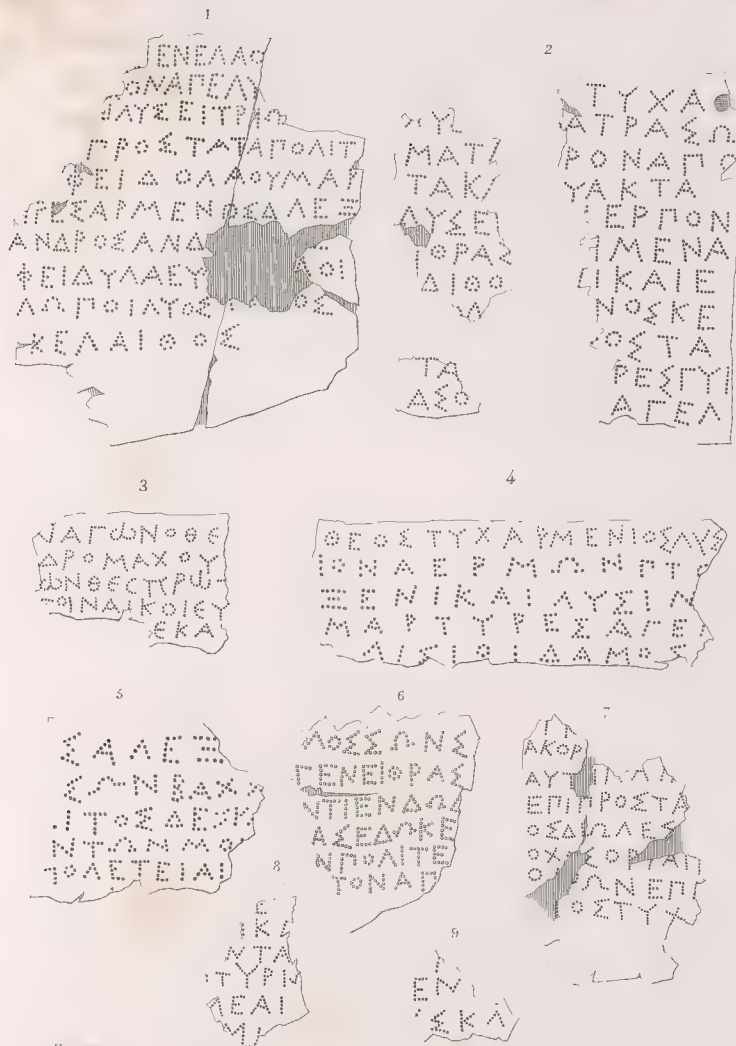 1
ΕΝΕΛΑΟ
ΟΝΑΠΕΛΥ
ΛΥΣΕΙΤΡΙΩ
ΠΡΟΣΤΑΤΑΠΟΛΙΤ
ΦΕΙΔΟΛΑΟΥΜΑΡ
ΥΡΕΣΑΡΜΕΝΟΣΑΛΕΞ
ΑΝΔΡΟΣΑΝΔ
ΟΙ
ΦΕΙΔΥΛΑΕΥ
ΟΣ
ΛΩΠΟΙΛΥΟΣ
ΧΕΛΑΙΘΟΣ
2
ΜΑΤ
ΤΑΚ
ΛΥΣΕ
ΓΟΡΑΣ
ΔΙΘΟ
Α
ΤΑ
ΔΣΟ
ΤΥΧΑ
ΑΤΡΑΣΩ
ΡΟΝΑΠΟ
ΥΑΚΤΑ
ΕΡΠΟΝ
ΙΜΕΝΑ
ΙΚΑΙΕ
ΝΟΣΚΕ
ΟΣΤΑ
ΡΕΣΠΥΙ
ΑΓΕΛ
3
ΑΓΩΝΟΘΕ
ΔΡΟΜΑΧΟΥ
ΩΝΘΕCΠΡΩ
ΟΙΝΔΙΚΟΙΕΥ
ΕΚΑ
4
ΘΕΟΣΤΥΧΑΡΜΕΝΙΟΣΛΥΣ
ΙΟΝΑΕΡΜΩΝΠΤ
ΞΕΝΙΚΑΙΛΥΣΙΝ
ΜΑΡΤΥΡΕΣΑΓΕ
ΛΙΣΙΟΙΔΑΜΟΣ
5
ΣΑΛΕΞ
ΩΝΒΑΧ
ΙΤΟΣΔΕΞΚ
ΝΤΩΝΜΑ
ΠΟΛΕΤΕΙΑΙ
6
ΛΟΣΣΩΝΣ
ΓΕΝΕΙΟΡΑΣ
ΝΤΙΕΝΔΩ
ΑΣΕΔΩΚΕ
ΝΠΟΛΙΤΕ
ΤΟΝΑΠ
7
ΑΚΟΡ
ΑΥΤ
ΕΠΙΠΡΟΣΤΑ
ΟΣΔΩΛΕΣ
ΟΧ
ΚΟΝ
ΩΝΕΠ
ΟΣΤΥ
8
Ε
ΙΚ
ΝΤΑ
ΤΥΡΙ
ΕΑΙ
9
ΕΝ
ΣΚ